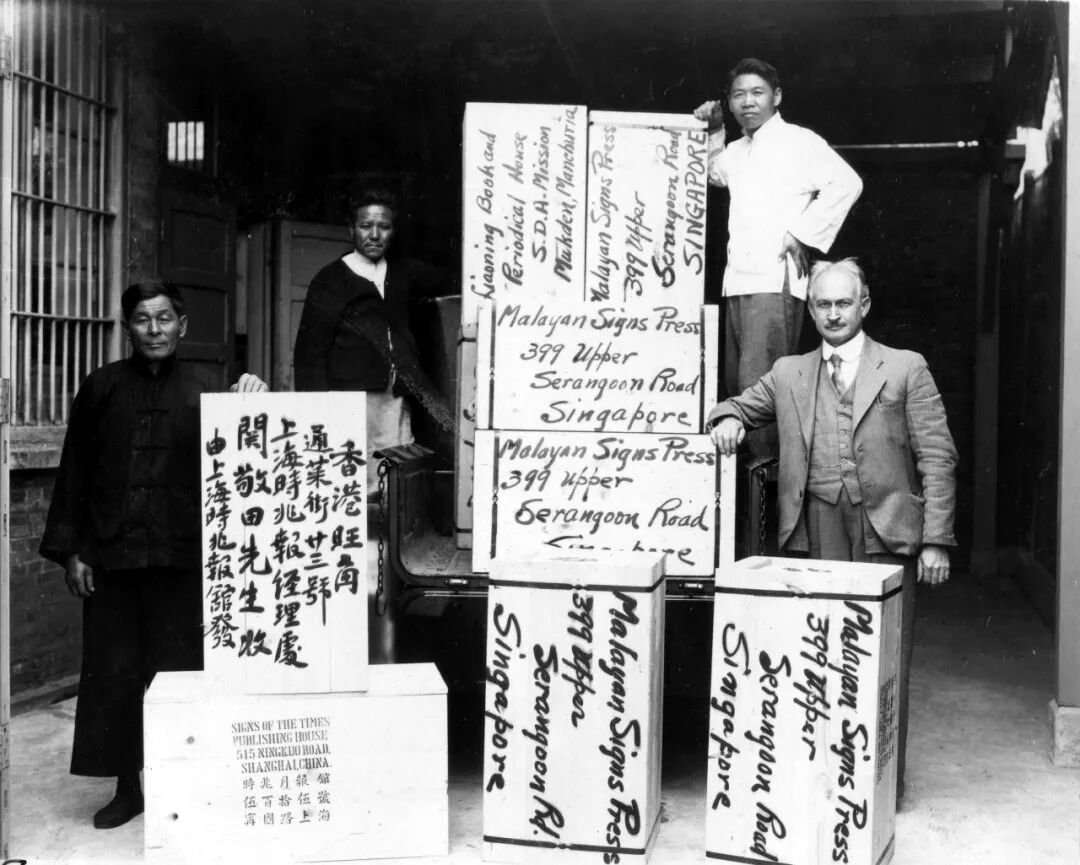 Liaoning Book and
Periodical House
S.D.A. Mission
Mukden, Manchuria
Malayan Signs Press
399 Upper
Serangoon Road
SINGAPORE
Malayan Signs Press
399 Upper
Serangoon Road
Singapore
Malayan Signs Press
399 Upper
Serangoon Road
Singapore
香港旺角
通菜街廿三號
上海時兆報經理處
關敬田先生收
由上海時兆報館發
SIGNS OF THE TIMES
PUBLISHING HOUSE
515 NINGKUO ROAD,
SHANGHAI, CHINA.
時兆月報館
伍百拾伍號
甯國路上海
Malayan Signs Press
399 Upper
Serangoon Rd.
Singapore
Malayan Signs Press
399 Upper
Serangoon Road
Singapore